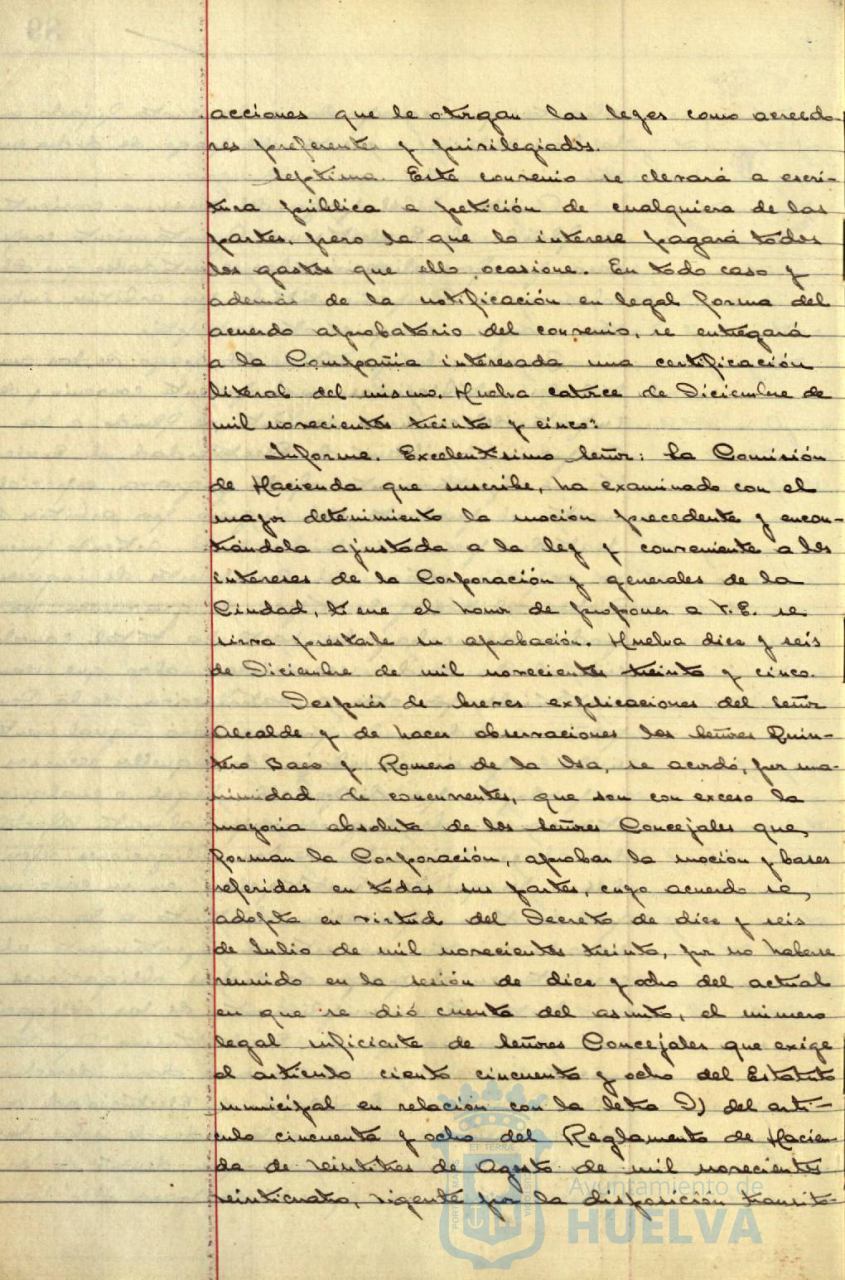 acciones que le otorgan las leyes como acreedo-
res preferentes y privilegiados.
Septima. Este convenio se elevará a escri-
tura pública a petición de cualquiera de las
partes, pero la que lo interese pagará todos
los gastos que ello ocasione. En todo caso y
además de la notificación en legal forma del
acuerdo aprobatorio del convenio, se entregará
a la Compañia interesada una certificación
literal del mismo. Huelva catorce de Diciembre de
mil novecientos treinta y cinco:
Informe. Excelentisimo Señor: La Comisión
de Hacienda que suscribe, ha examinado con el
mayor detenimiento la moción precedente y encon-
trándola ajustada a la ley y conveniente a los
intereses de la Corporación y generales de la
Ciudad, tiene el honor de proponer a V.E. se
sirva prestarle su aprobación. Huelva diez y seis
de Diciembre de mil novecientos treinta y cinco.
Después de breves explicaciones del Señor
Alcalde y de hacer observaciones los Señores Quin-
tero Baez y Romero de la Osa, se acordó, por una-
nimidad de concurrentes, que son con exceso la
mayoria absoluta de los Señores Concejales que
forman la Corporación, aprobar la moción y bases
referidas en todas sus partes, cuyo acuerdo se
adopta en virtud del Decreto de diez y seis
de Julio de mil novecientos treinta, por no haberse
reunido en la sesión de diez y ocho del actual
en que se dió cuenta del asunto, el número
legal suficiente de Señores Concejales que exige
el articulo ciento cincuenta y ocho del Estatuto
municipal en relación con la letra D) del arti-
culo cincuenta y ocho del Reglamento de Hacien-
da de veintitres de Agosto de mil novecientos
veinticuatro, vigente por la disposición transito-
Ayuntamiento de
HUELVA